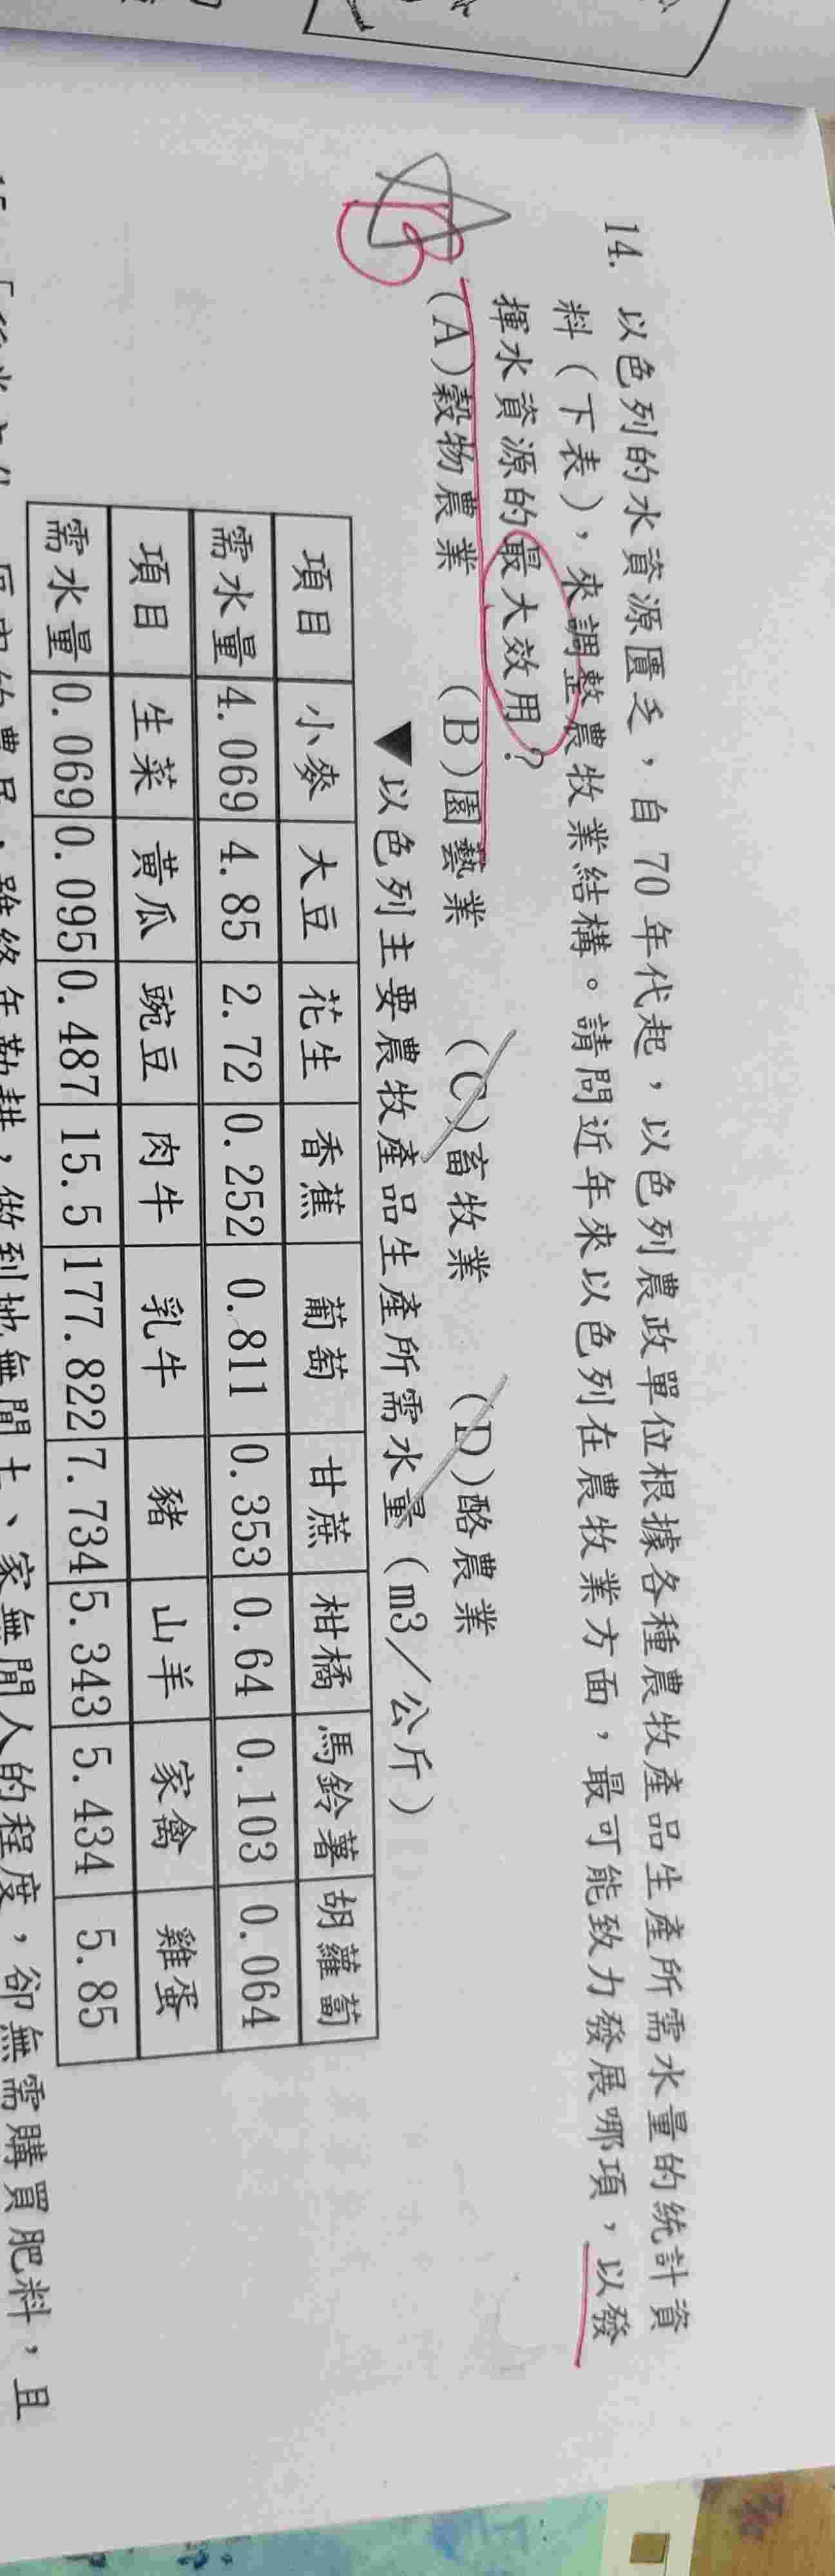 14. 以色列的水資源匱乏，自70年代起，以色列農政單位根據各種農牧產品生產所需水量的統計資
料（下表），來調整農牧業結構。請問近年來以色列在農牧業方面，最可能致力發展哪項，以發
揮水資源的最大效用？
B
(A)穀物農業 (B)園藝業 (C)畜牧業 (D)酪農業
▼以色列主要農牧產品生產所需水量（m3／公斤）
項目 小麥 大豆 花生 香蕉 葡萄 甘蔗 柑橘 馬鈴薯 胡蘿蔔
需水量 4.069 4.85 2.72 0.252 0.811 0.353 0.64 0.103 0.064
項目 生菜 黃瓜 豌豆 肉牛 乳牛 豬 山羊 家禽 雞蛋
需水量 0.069 0.095 0.487 15.5 177.822 7.734 5.343 5.434 5.85
，雖終年勤耕，做到地無閒土、家無閒人的程度，卻無需購買肥料，且